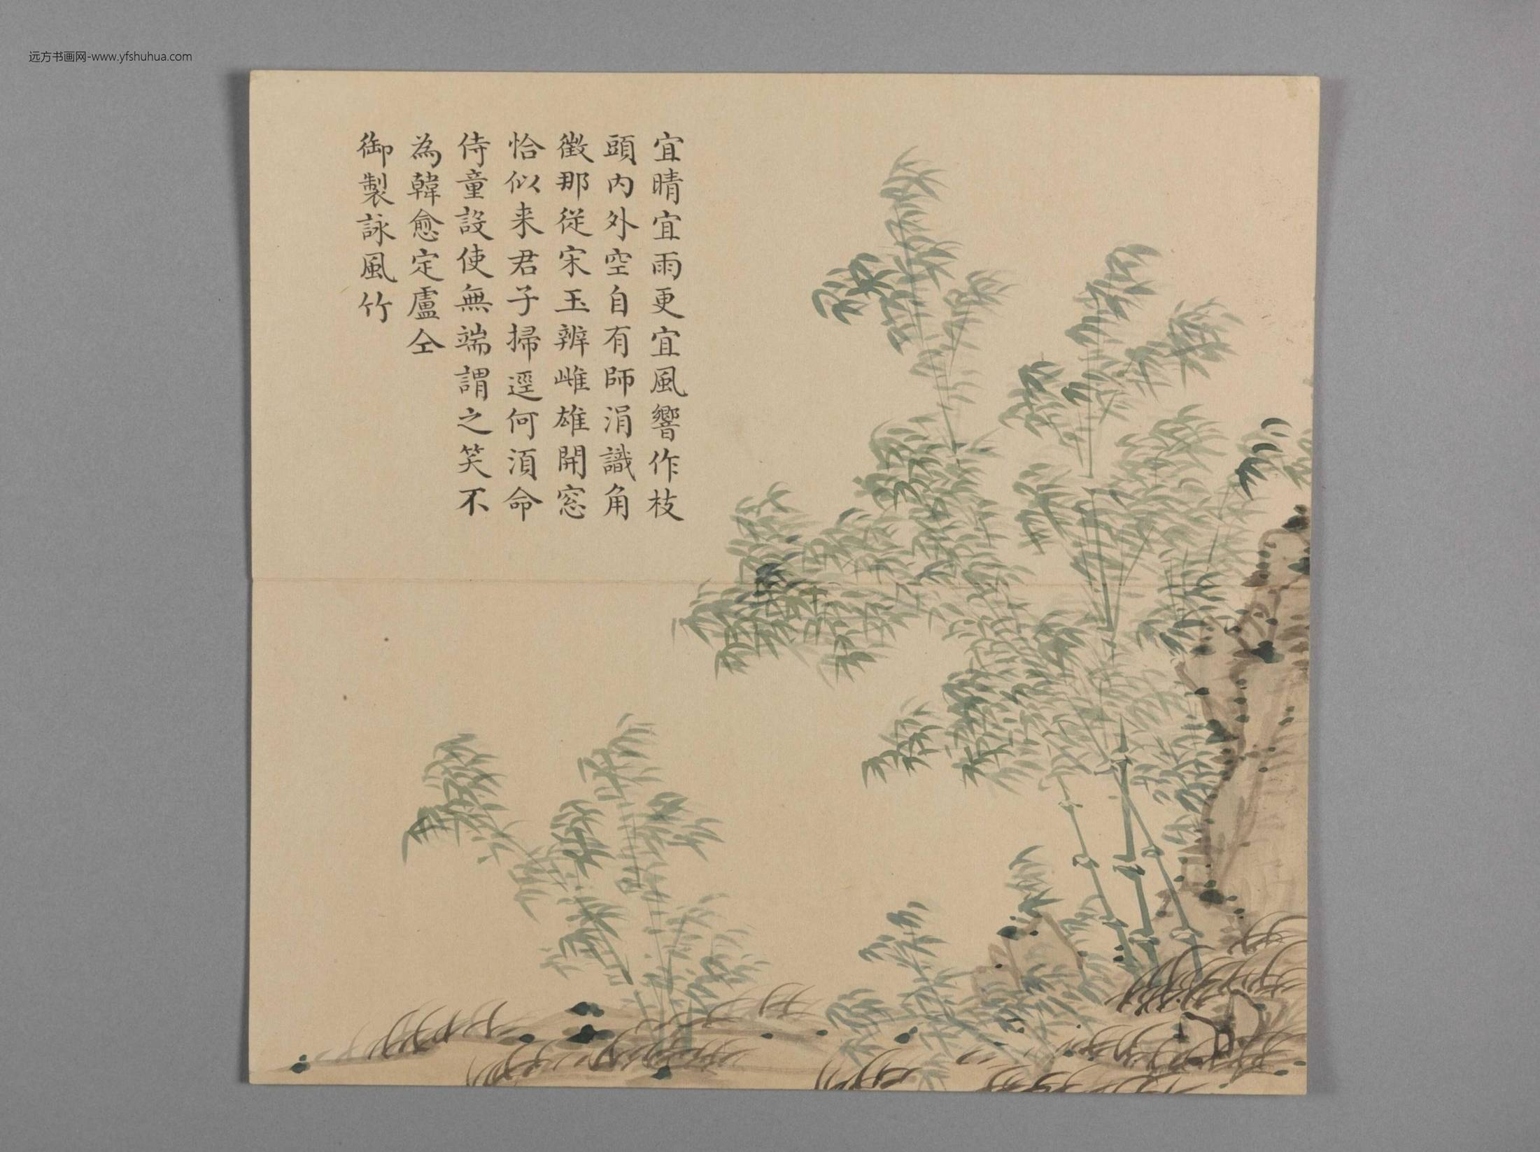 远方书画网-www.yfshuhua.com
宜晴宜雨更宜風響作枝
頭内外空自有師涓識角
徵那從宋玉辨雌雄開窓
恰似来君子掃逕何湏命
侍童設使無端謂之笑不
為韓愈定盧仝
御製詠風竹